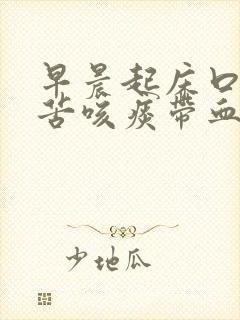 早晨起床口
苦咳痰带血
少地瓜